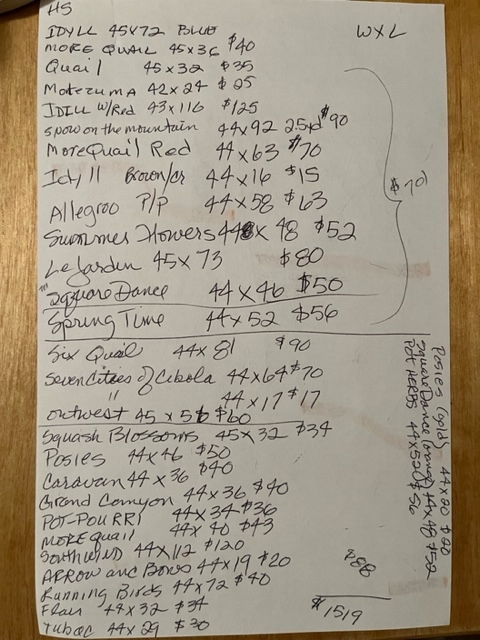 HS
WXL
IDYLL 45X72 BLUE
MORE QUAIL 45X36 $40
Quail 45x32 $35
Motezuma 42x24 $25
IDILL W/Red 43x116 $125
snow on the mountain 44x92 2.5yd $90
More Quail Red 44x63 $70
Idyll Brown/cr 44x16 $15
Allegroo P/P 44x58 $63
Summer Flowers 44x48 $52
Le Jardin 45x73 $80
Square Dance 44x46 $50
Spring Time 44x52 $56
$70
Six Quail 44x81 $90
Seven Cities of Cibola 44x64 $70
" 44x17 $17
outwest 45x56 $60
Squash Blossoms 45x32 $34
Posies 44x46 $50
Caravan 44x36 $40
Grand Canyon 44x36 $40
POT-POURRI 44x34 $36
MORE Quail 44x40 $43
Southwind 44x112 $120
ARROW and Bows 44x19 $20
Running Birds 44x72 $40
Flair 44x32 $34
Tubac 44x29 $30
$88
$1519
Posies (gold) 44x20 $20
Square Dance (orange) 44x48 $52
POT HERBS 44x520 $56